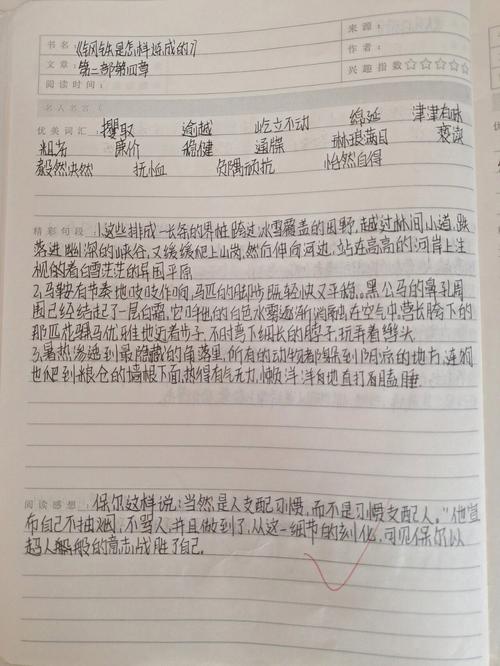 来源：
书名：《钢铁是怎样炼成的》
作者：
文章：第二部第四章
兴趣指数☆☆☆☆☆
阅读时间：
名人名言
优美词汇 攫取 逾越 屹立不动 绵延 津津有味
粗劣 廉价 稳健 通牒 琳琅满目 亵渎
毅然决然 抚恤 负隅顽抗 怡然自得
精彩句段 1.这些排成一长溜的界桩跨过冰雪覆盖的田野,越过林间小道,跌
落进幽深的峡谷,又缓缓爬上山岗,然后伸向河边,站在高高的河岸上注
视的着白雪茫茫的异国平原
2.马鞍有节奏地吱吱作响,马匹的脚步既轻快又平稳。黑公马的鼻孔周
围已经结起了一层白霜,它呼出的白色水雾逐渐消融在空气中。营长胯下的
那匹花骒马优雅地迈着步子,不时弯下细长的脖子,玩弄着辔头
3.暑热渗透到最隐藏的角落里,所有的动物都躲到阴凉的地方,连狗
也爬到粮仓的墙根下面,热得有气无力,懒洋洋地直打着瞌睡
阅读感想：保尔这样说:当然是人支配习惯,而不是习惯支配人。"他宣
布自己不抽烟,不骂人,并且做到了,从这一细节的刻化,可见保尔以
超人般般的意志战胜了自己.